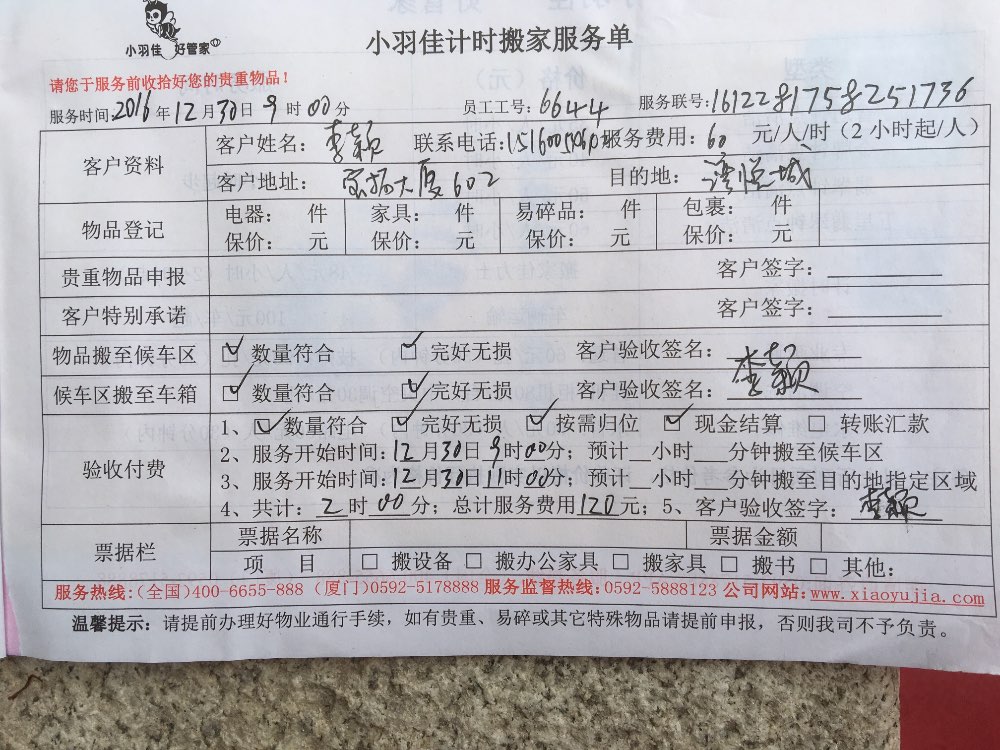 小羽佳 好管家
小羽佳计时搬家服务单
请您于服务前收拾好您的贵重物品！
服务时间：2016年12月30日9时00分 员工工号：6644 服务联号：1612281758251736
客户资料 客户姓名：李颖 联系电话： 服务费用：60元/人/时（2小时起/人）
客户地址：大厦602 目的地：湾悦城
物品登记 电器： 件 家具： 件 易碎品： 件 包裹： 件
保价： 元 保价： 元 保价： 元 保价： 元
贵重物品申报 客户签字：
客户特别承诺 客户签字：
物品搬至候车区 ☑ 数量符合 ☑ 完好无损 客户验收签名：李颖
候车区搬至车箱 ☑ 数量符合 ☑ 完好无损 客户验收签名：
验收付费 1、☑ 数量符合 ☑ 完好无损 ☑ 按需归位 ☑ 现金结算 □ 转账汇款
2、服务开始时间：12月30日9时00分；预计__小时___分钟搬至候车区
3、服务开始时间：12月30日11时00分；预计__小时___分钟搬至目的地指定区域
4、共计：2时00分；总计服务费用120元；5、客户验收签字：李颖
票据栏 票据名称 票据金额
项 目 □ 搬设备 □ 搬办公家具 □ 搬家具 □ 搬书 □ 其他：
服务热线：(全国)400-6655-888 (厦门)0592-5178888 服务监督热线：0592-5888123 公司网站：www.xiaoyujia.com
温馨提示：请提前办理好物业通行手续，如有贵重、易碎或其它特殊物品请提前申报，否则我司不予负责。